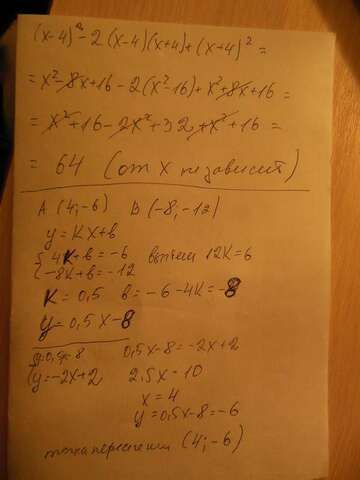 (x-4)² - 2(x-4)(x+4) + (x+4)² =
= x² - 8x + 16 - 2(x² - 16) + x² + 8x + 16 =
= x² + 16 - 2x² + 32 + x² + 16 =
= 64 (от x не зависит)
A (4; -6) B (-8, -12)
y = kx + b
{ 4k + b = -6 вычтем 12k = 6
{ -8k + b = -12
k = 0,5 b = -6 - 4k = -8
y = 0,5x - 8
{ y = 0,5x - 8 0,5x - 8 = -2x + 2
{ y = -2x + 2 2,5x = 10
x = 4
y = 0,5x - 8 = -6
точка пересечения (4; -6)